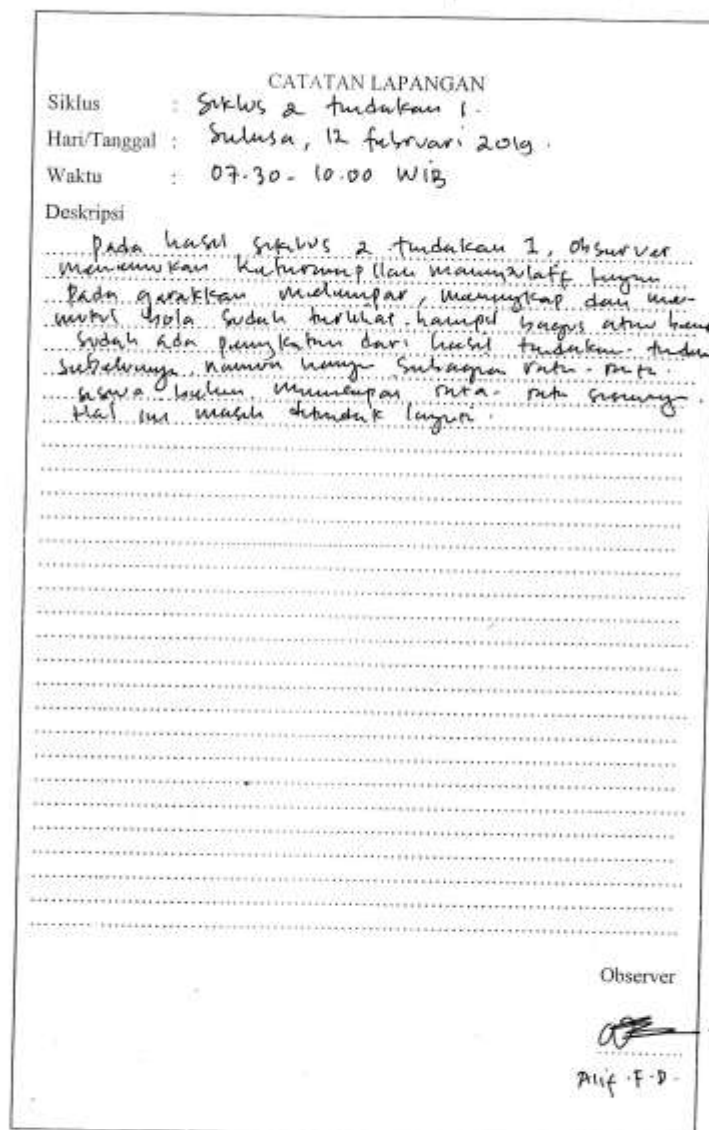 CATATAN LAPANGAN
Siklus : Siklus 2 tindakan 1.
Hari/Tanggal : Selasa, 12 februari 2019.
Waktu : 07.30 - 10.00 WIB
Deskripsi
Pada hasil siklus 2 tindakan 1, observer
menemukan keterampilan manipulatif
Pada gerakkan melempar, menangkap dan me-
mukul bola sudah terlihat hampir bagus atau
sudah ada peningkatan dari hasil tindakan-
sebelumnya, namun hanya sebagian rata-rata
siswa belum mencapai rata-rata
Hal ini masih ditindak lanjuti.
Observer
Alif .F.D.